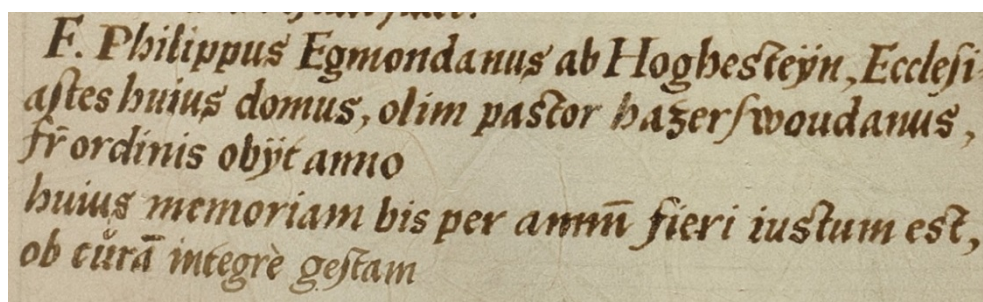 F. Philippus Egmondanus ab Hoghesteÿn, Ecclesi-
astes huius domus, olim pastor hazerswoudanus,
fr̄ ordinis obÿt anno
huius memoriam bis per annū fieri iustum est,
ob cŭrā integrè gestam